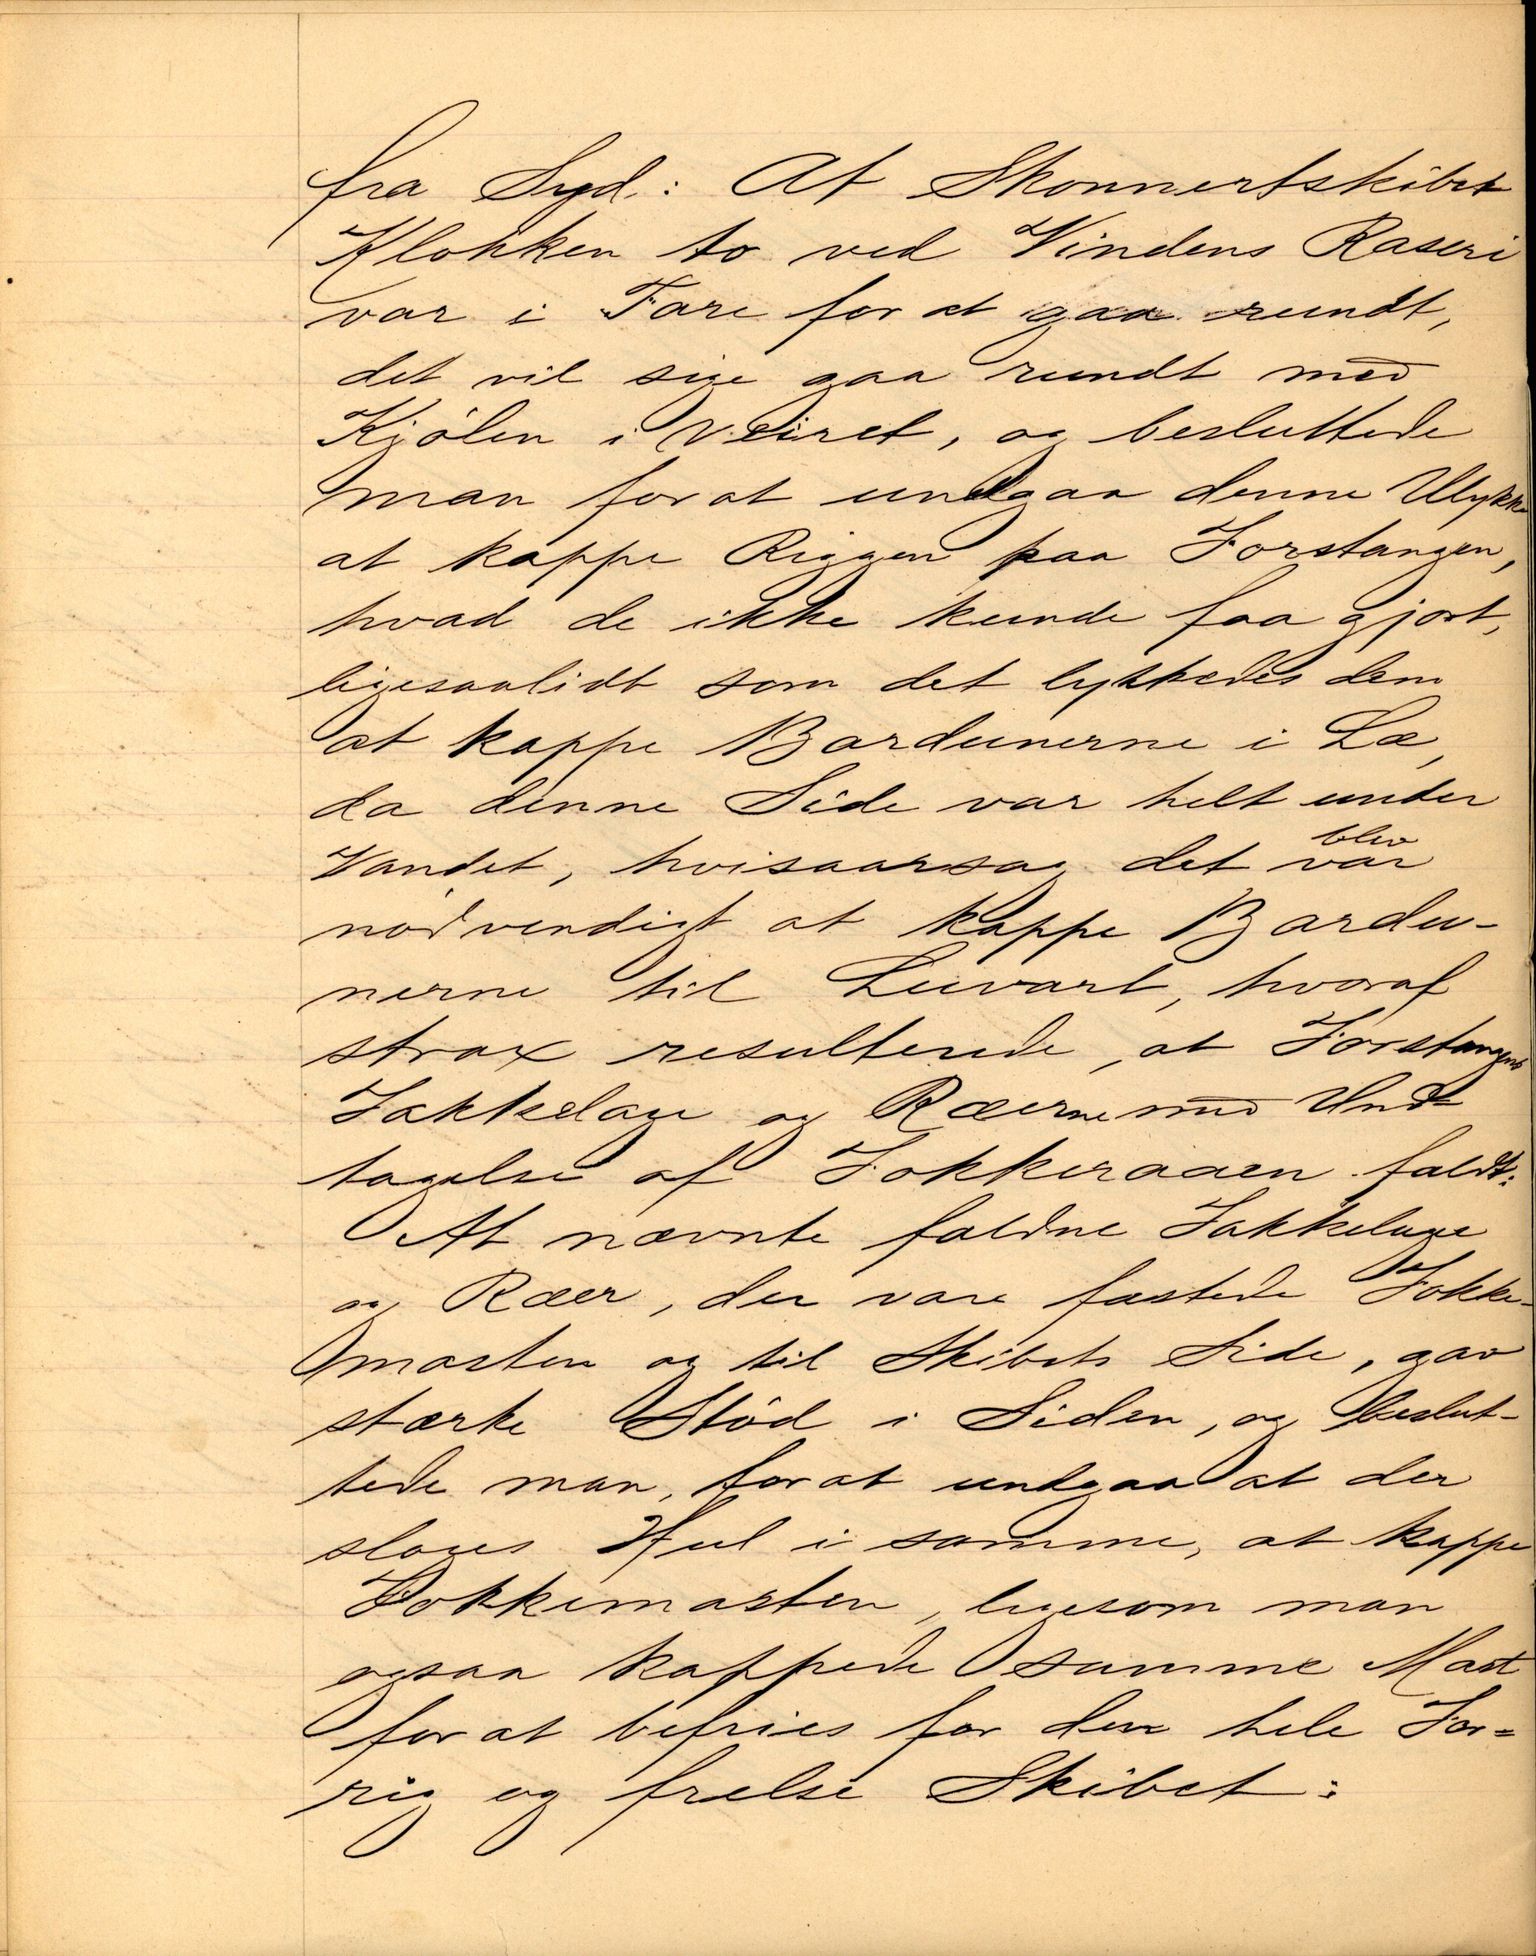 fra Syd.: At Skonnertskibet
Klokken to ved Vindens Raseri
var i Fare for at gaa rundt,
det vil sige gaa rundt med
Kjölen i Veiret, og besluttede
man for at undgaa denne Ulykke
at kappe Riggen paa Forstangen,
hvad de ikke kunde faa gjort,
ligesaalidt som det lykkedes dem
at kappe Bardunerne i Læ,
da denne Side var helt under
blev
Vandet, hvisaarsag det var
nödvendigt at kappe Bardu-
nerne til Luvart, hvoraf
strax resulterede, at Forstangens
Takkelage og Ræerne med Und-
tagelse af Fokkeraaen faldt:
At nævnte faldne Takkelage
og Ræer, der vare fæstede Fokke-
masten og til Skibets Side, gav
stærke Stöd i Siden, og beslut-
tede man, for at undgaa at der
sloges Hul i samme, at kappe
Fokkemasten, ligesom man
ogsaa kappede samme Mast
for at befries for den hele For=
rig og frelse Skibet: